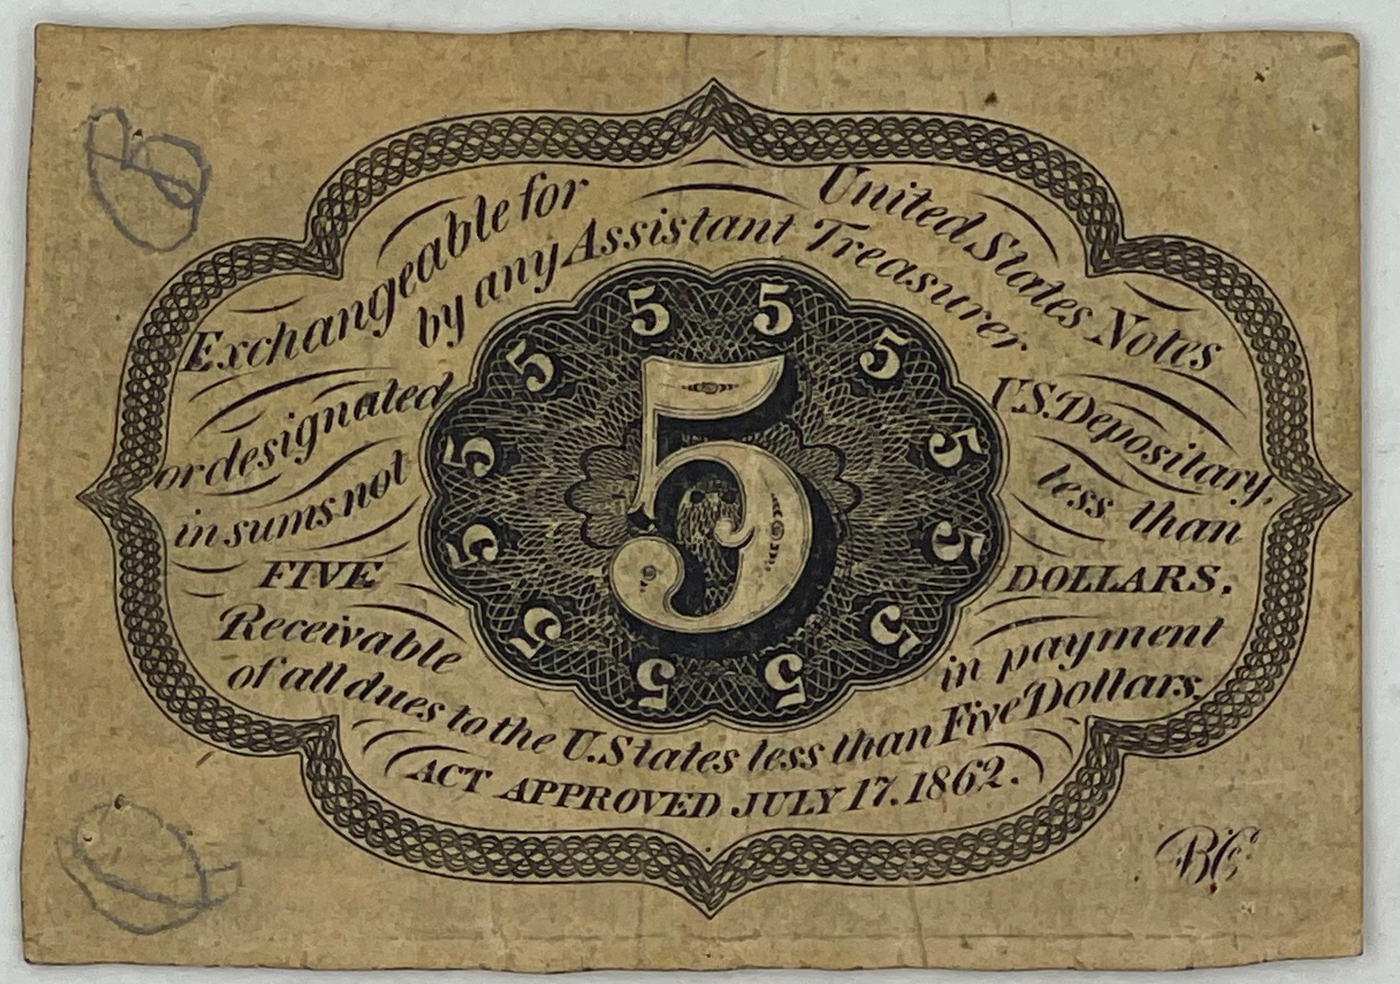 Exchangeable for United States Notes
by any Assistant Treasurer
or designated U.S. Depositary,
in sums not less than
FIVE DOLLARS.
Receivable in payment
of all dues to the U. States less than Five Dollars.
ACT APPROVED JULY 17. 1862.
5 5
5 5
5 5
5
5 5
5 5
5 5